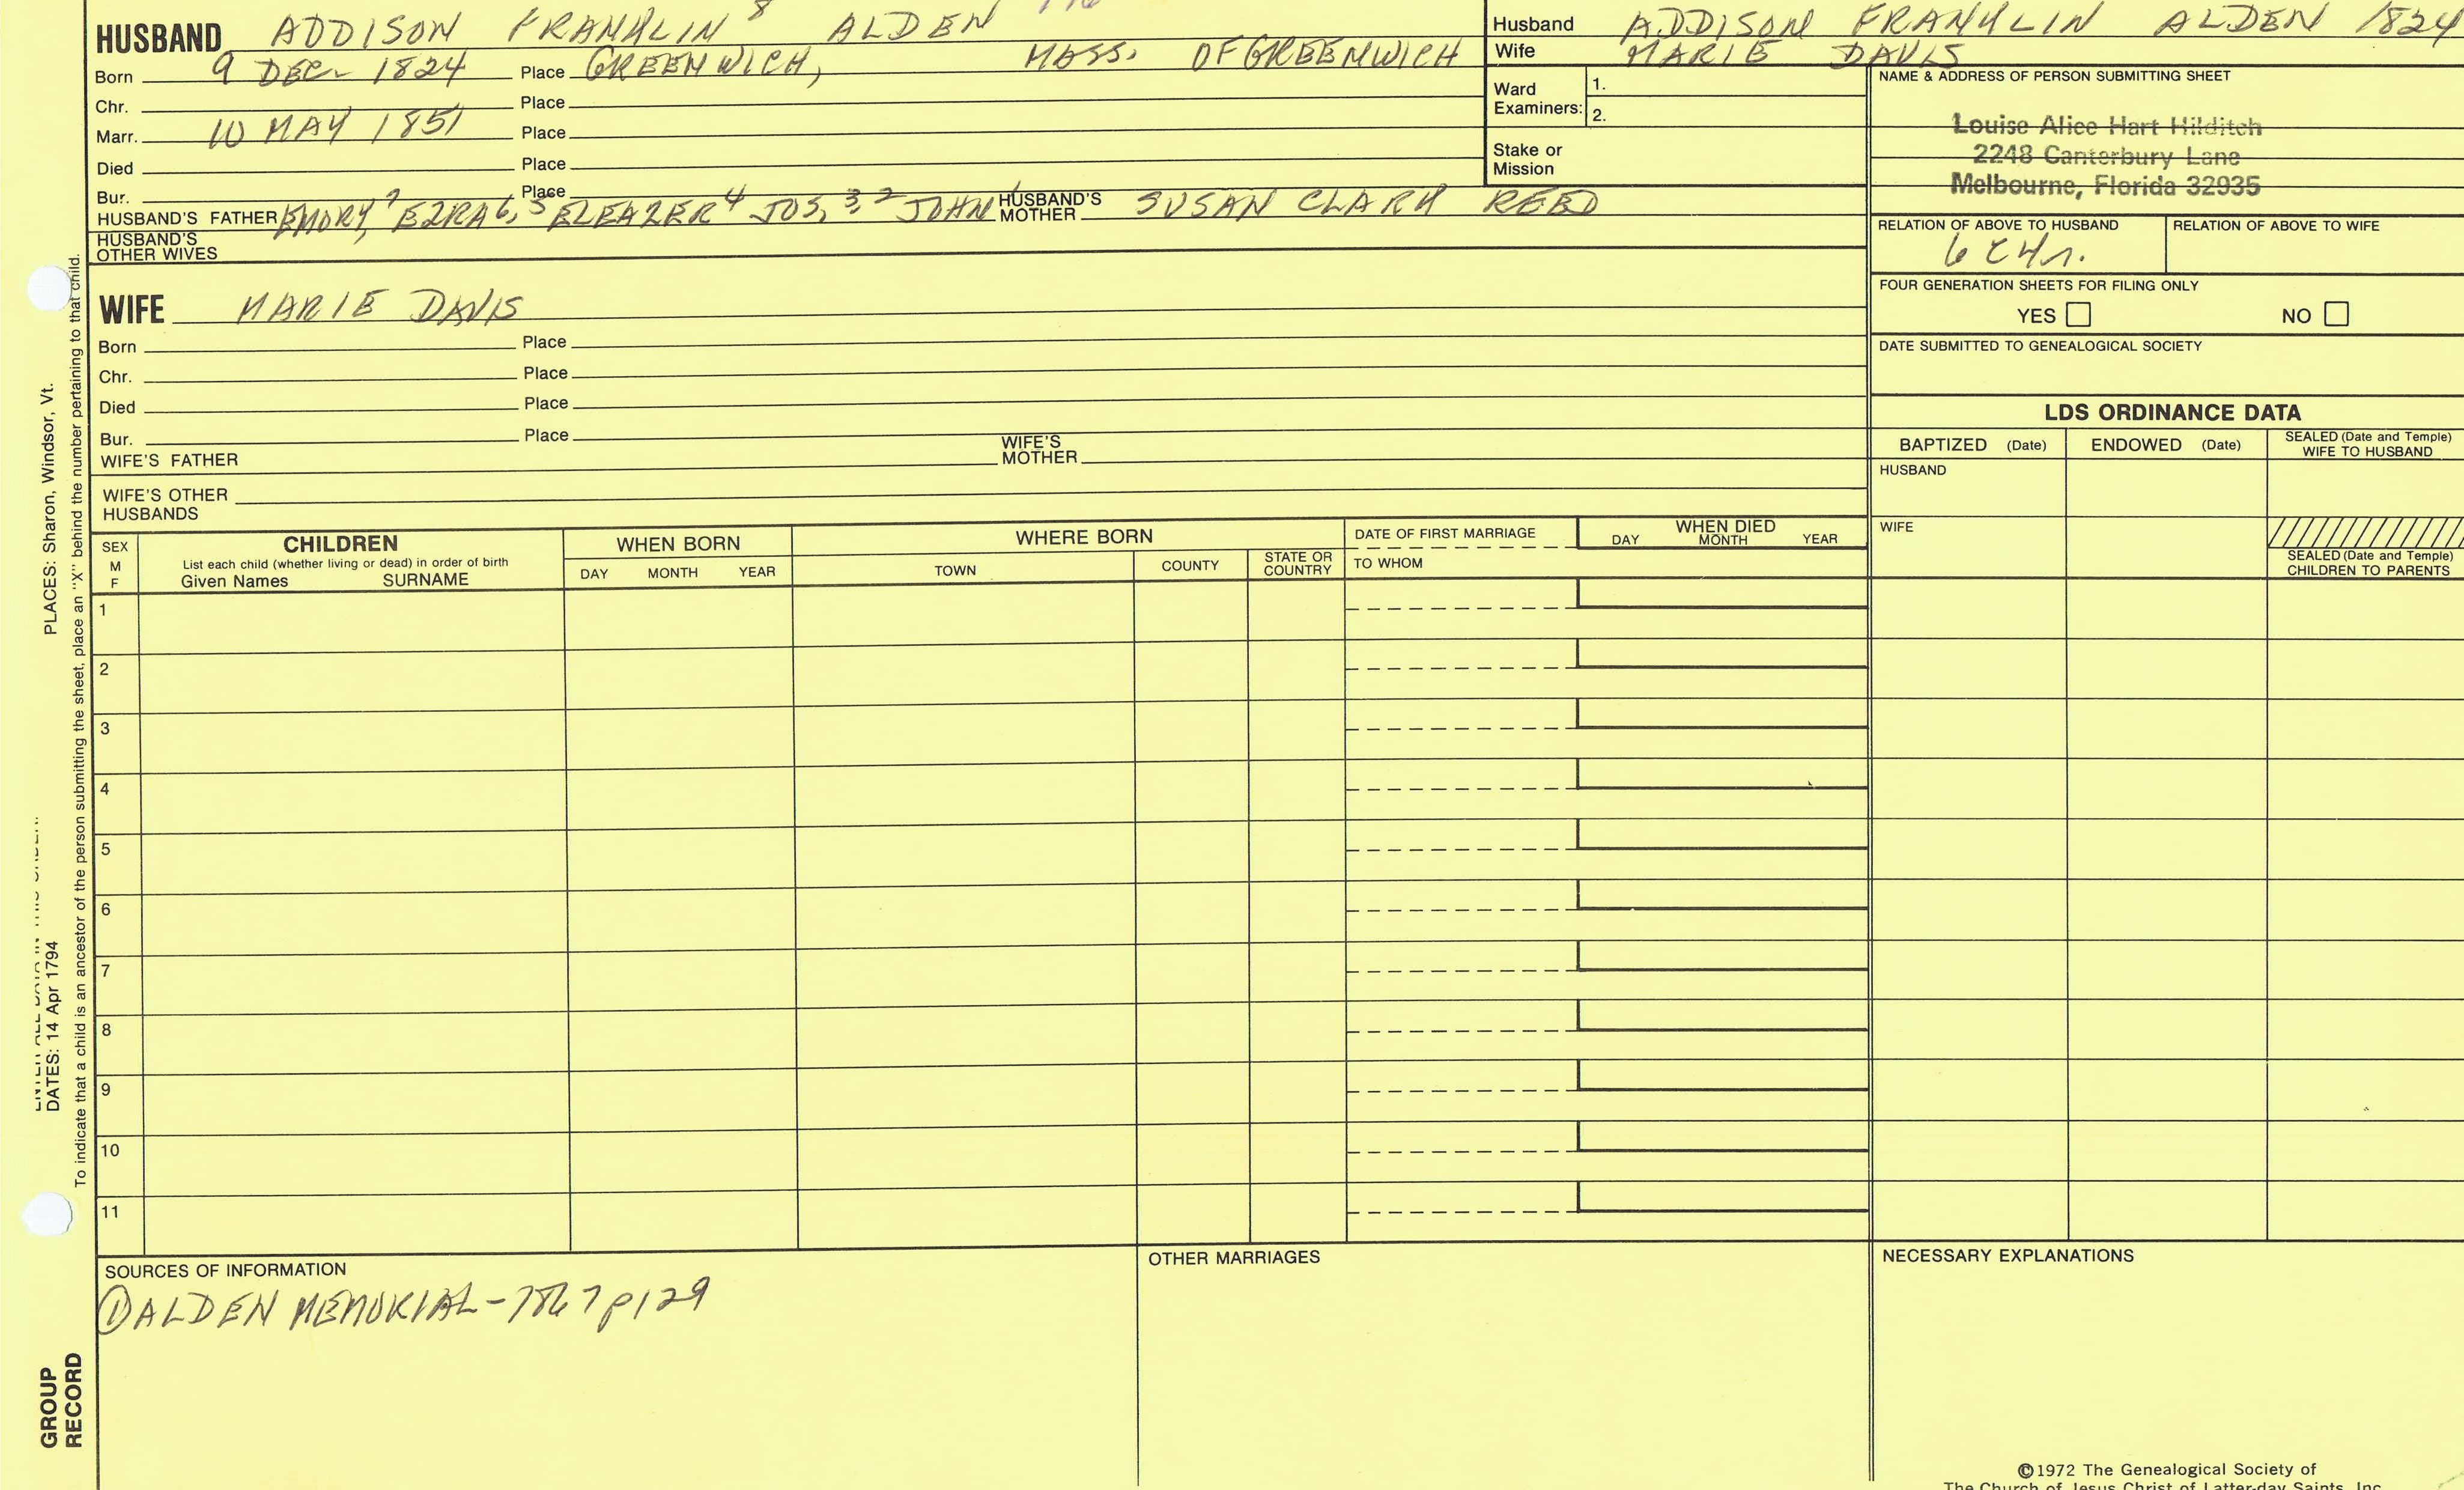 HUSBAND ADDISON FRANKLIN 8 ALDEN
Born 9 DEC. 1824 Place GREENWICH, MASS. OF GREENWICH
Chr. Place
Marr. 10 MAY 1851 Place
Died Place
Bur. Place
HUSBAND'S FATHER EMORY 7, EZRA 6, 5 ELEAZER 4 JOS, 3, 2 JOHN 1 HUSBAND'S MOTHER SUSAN CLARK REED
HUSBAND'S OTHER WIVES
WIFE MARIE DAVIS
Born Place
Chr. Place
Died Place
Bur. Place
WIFE'S FATHER WIFE'S MOTHER
WIFE'S OTHER HUSBANDS
Husband ADDISON FRANKLIN ALDEN 1824
Wife MARIE DAVIS
Ward Examiners: 1.
2.
Stake or Mission
NAME & ADDRESS OF PERSON SUBMITTING SHEET
Louise Alice Hart Hilditch
2248 Canterbury Lane
Melbourne, Florida 32935
RELATION OF ABOVE TO HUSBAND RELATION OF ABOVE TO WIFE
6 C4r.
FOUR GENERATION SHEETS FOR FILING ONLY
YES NO
DATE SUBMITTED TO GENEALOGICAL SOCIETY
LDS ORDINANCE DATA
BAPTIZED (Date) ENDOWED (Date) SEALED (Date and Temple) WIFE TO HUSBAND
HUSBAND
WIFE
SEALED (Date and Temple) CHILDREN TO PARENTS
SEX M F
CHILDREN
List each child (whether living or dead) in order of birth
Given Names SURNAME
WHEN BORN
DAY MONTH YEAR
WHERE BORN
TOWN COUNTY STATE OR COUNTRY
DATE OF FIRST MARRIAGE
TO WHOM
WHEN DIED
DAY MONTH YEAR
1
2
3
4
5
6
7
8
9
10
11
SOURCES OF INFORMATION
① ALDEN MEMORIAL - 1867 p129
OTHER MARRIAGES
NECESSARY EXPLANATIONS
©1972 The Genealogical Society of
The Church of Jesus Christ of Latter-day Saints, Inc.
PLACES: Sharon, Windsor, Vt.
DATES: 14 Apr 1794
To indicate that a child is an ancestor of the person submitting the sheet, place an "X" behind the number pertaining to that child.
GROUP
RECORD